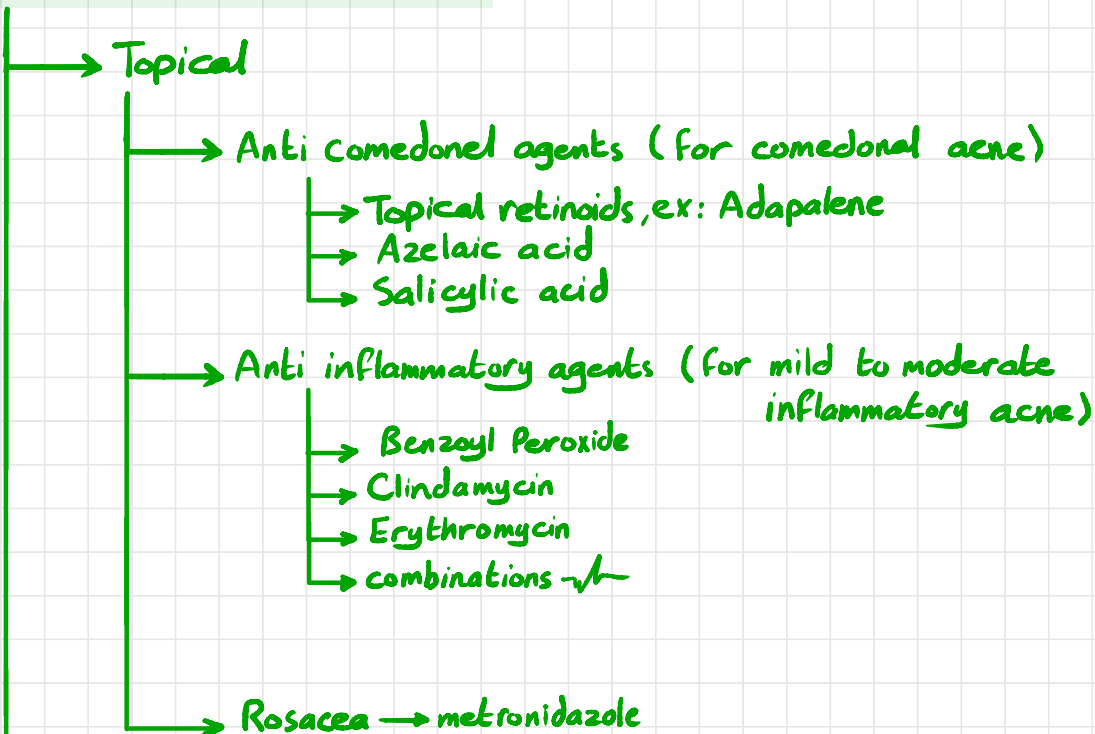 Topical
Anti comedonel agents (for comedonal acne)
Topical retinoids, ex: Adapalene
Azelaic acid
Salicylic acid
Anti inflammatory agents (for mild to moderate
inflammatory acne)
Benzoyl Peroxide
Clindamycin
Erythromycin
combinations
Rosacea → metronidazole